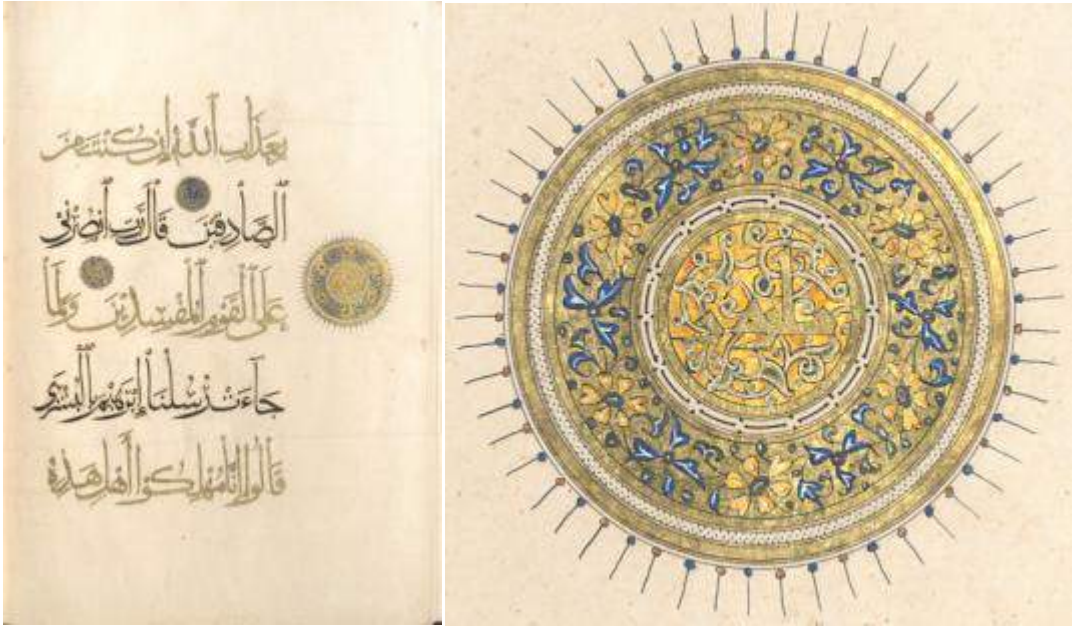 بِعَذَابِ ٱللَّهِ إِن كُنتَ مِنَ
ٱلصَّادِقِينَ قَالَ رَبِّ ٱنصُرْنِي
عَلَى ٱلْقَوْمِ ٱلْمُفْسِدِينَ وَلَمَّا
جَآءَتْ رُسُلُنَا إِبْرَهِيمَ بِٱلْبُشْرَى
قَالُوا إِنَّا مُهْلِكُوا أَهْلِ هَذِهِ